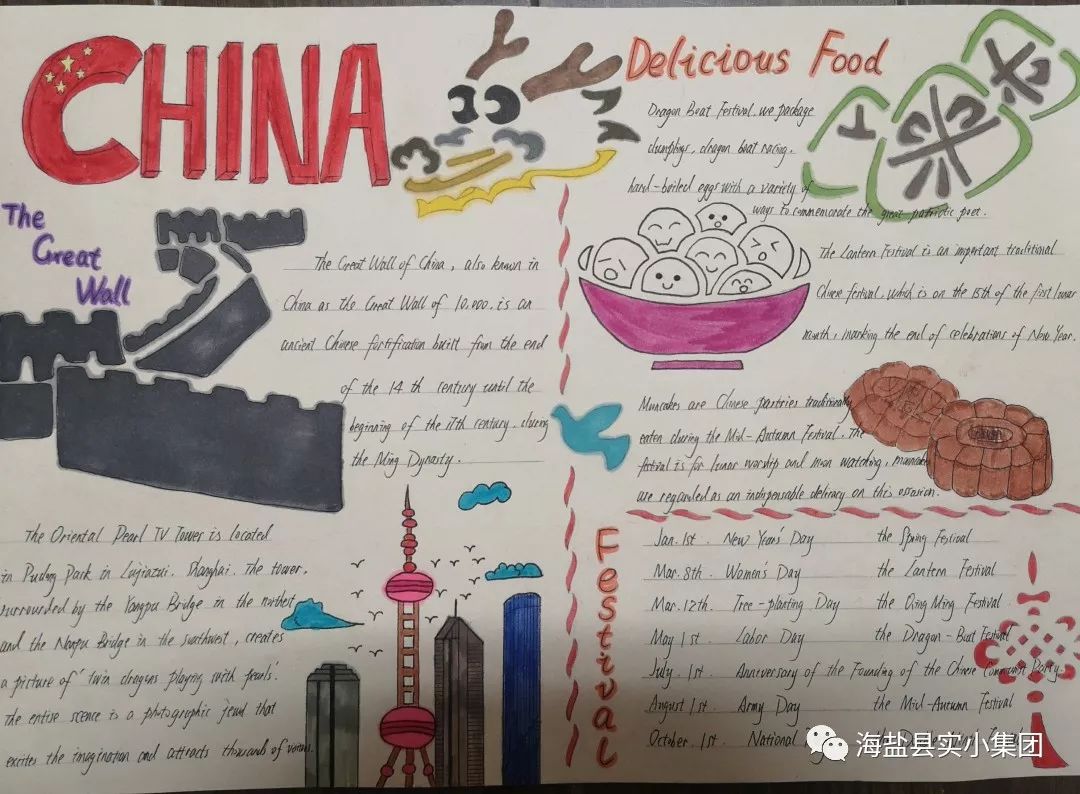 CHINA
The
Great
Wall
The Great Wall of China, also known in
China as the Great Wall of 10,000. is an
ancient Chinese fortification built from the end
of the 14 th century until the
beginning of the 17th century, during
the Ming Dynasty.
The Oriental Pearl TV Tower is located
in Pudong Park in Lujiazui. Shanghai. The tower,
surrounded by the Yangpu Bridge in the northest
and the Nanpu Bridge in the southwest, creates
a picture of 'twin dragons playing with pearls'.
The entire scence is a photographic jewel that
excites the imagination and attracts thousands of
Delicious Food
Dragon Boat Festival, we package
dumplings, dragon boat racing,
hard-boiled eggs with a variety of
ways to commemorate the great patriotic poet.
The Lantern Festival is an important traditional
Chinese festival, which is on the 15th of the first lunar
month, marking the end of celebrations of New Year.
Muncakes are Chinese pastries traditionally
eaten during the Mid-Autumn Festival. The
festival is for lunar worship and moon watching,
are regarded as an indispensable delicacy on this occasion.
米
Festival
Jan. 1st. New Year's Day the Spring Festival
Mar. 8th. Women's Day the Lantern Festival
Mar. 12th. Tree-planting Day the Qing Ming Festival
May 1st. Labor Day the Dragon-Boat Festival
July. 1st. Anniversary of the Founding of the Chinese Communist Party
August 1st. Army Day the Mid-Autumn Festival
October. 1st. National
海盐县实小集团